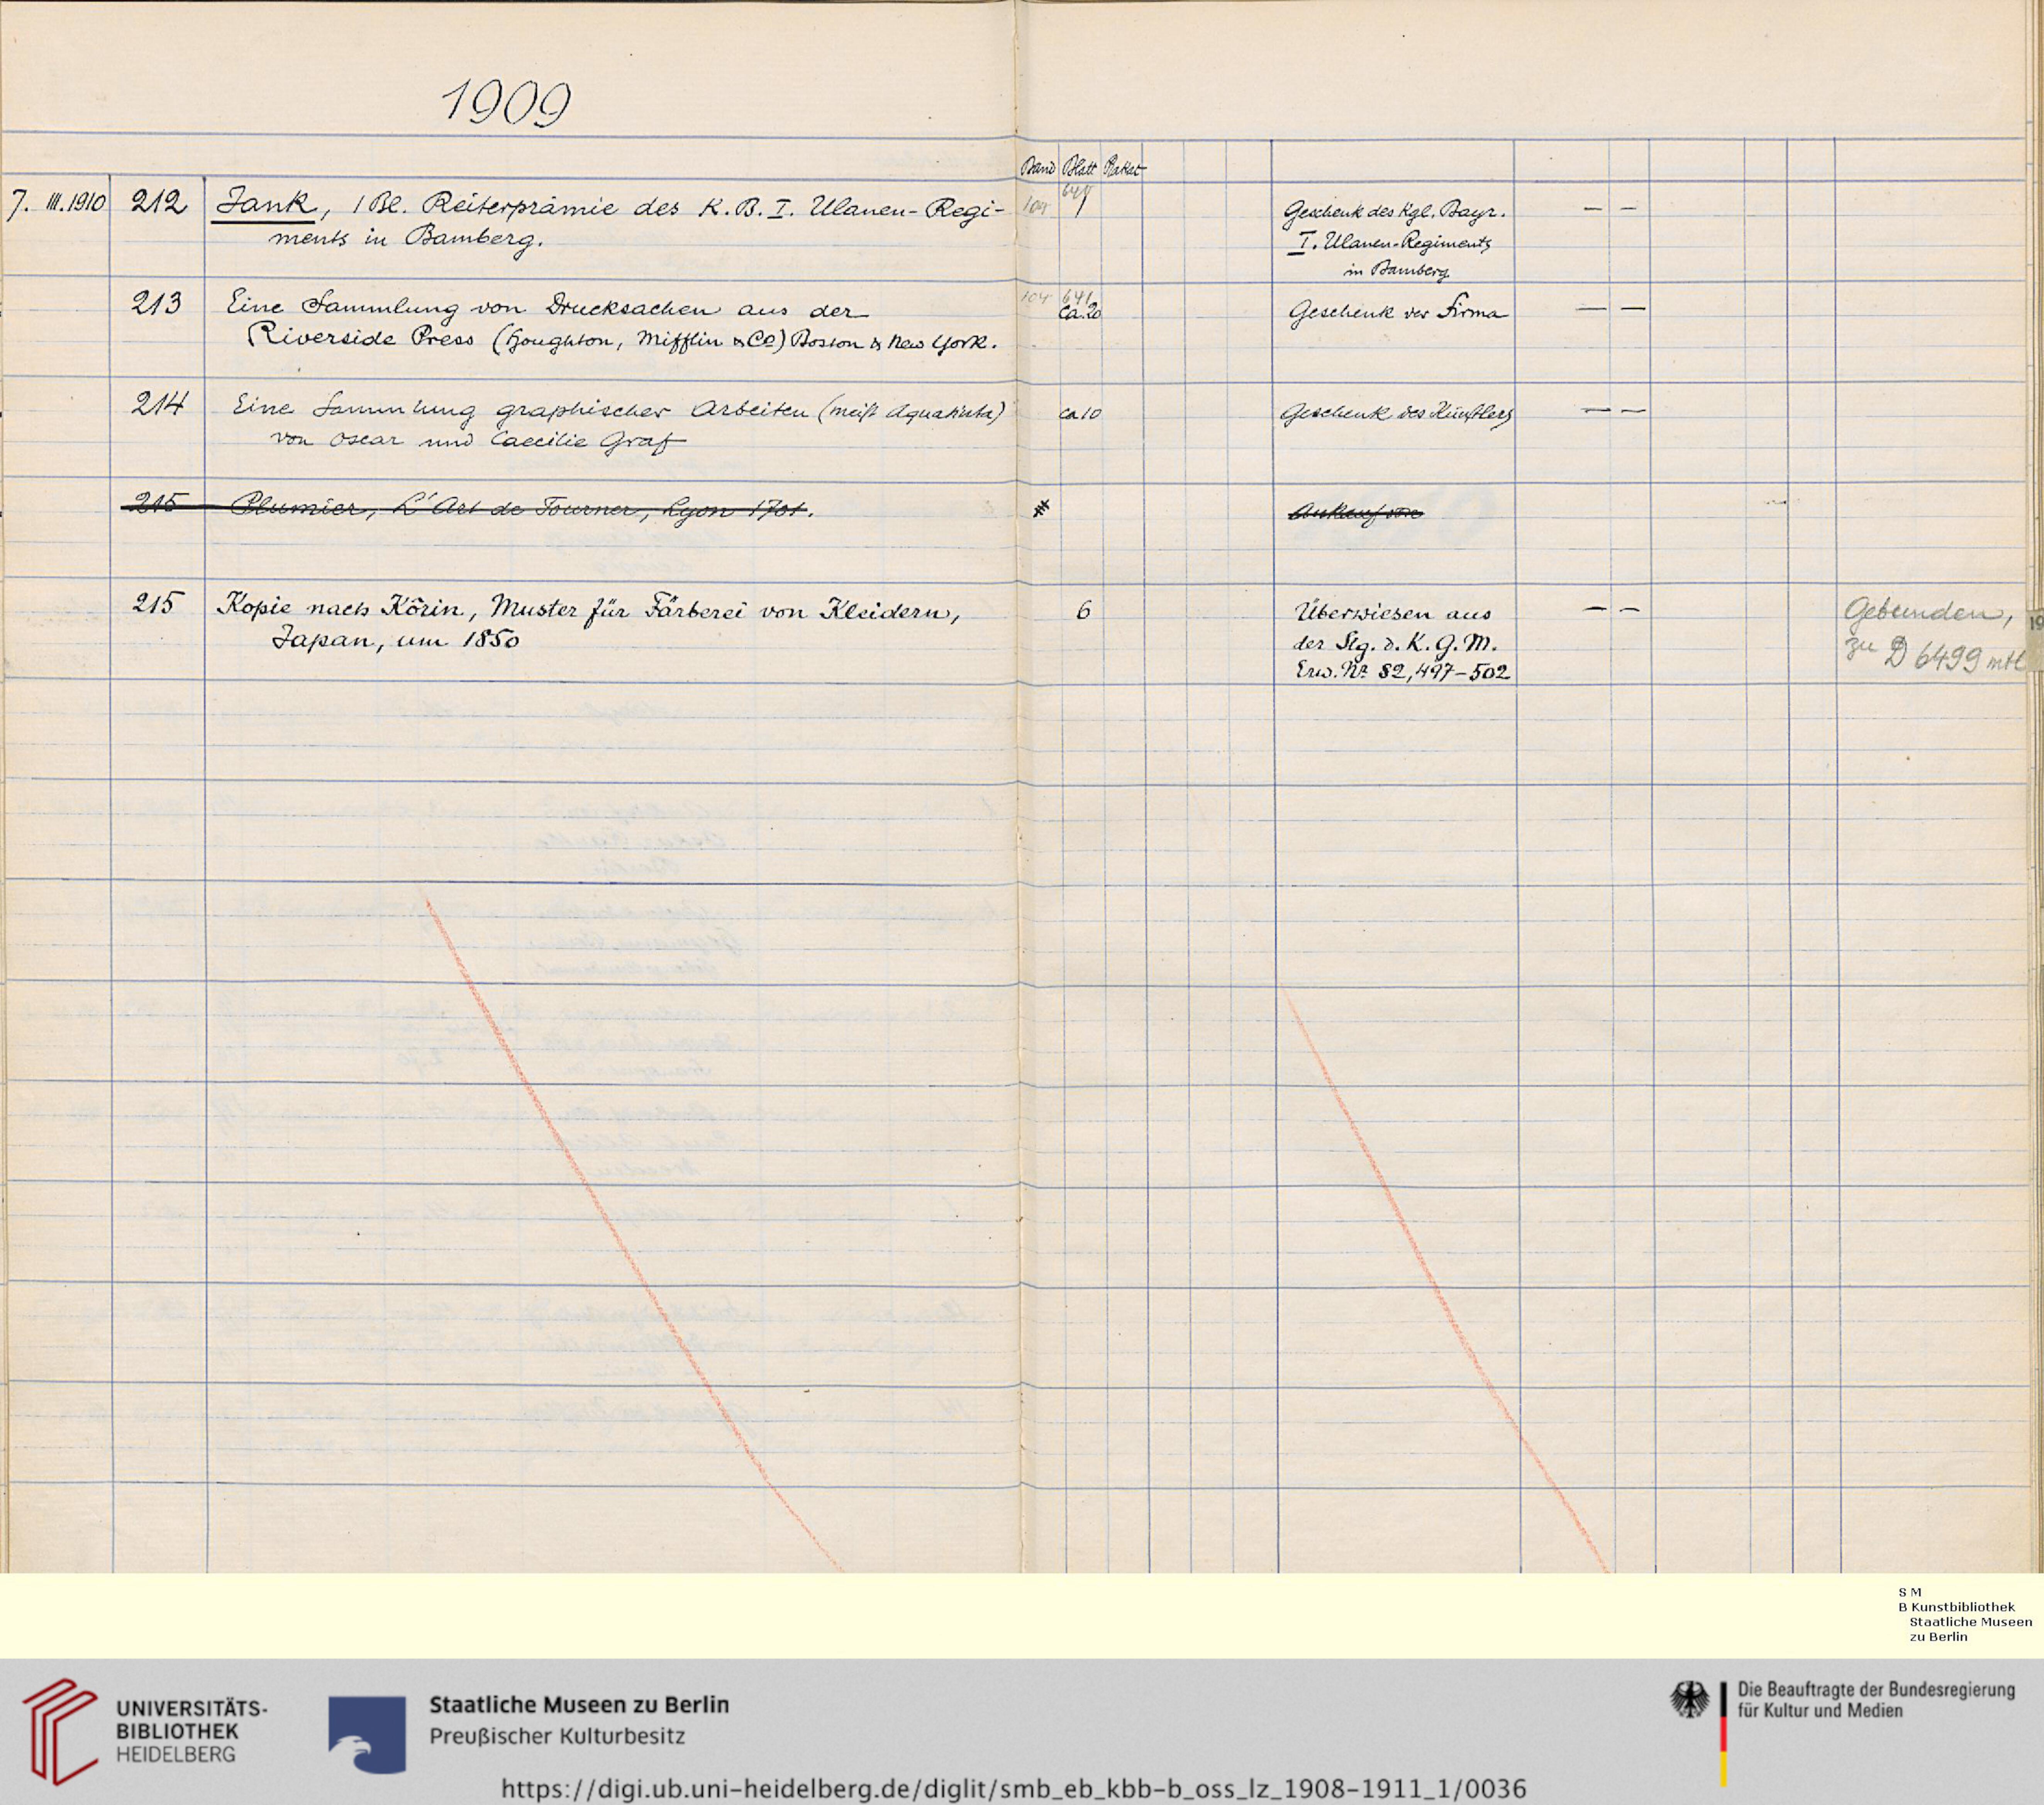 1909
Band Blatt Paket
7. III. 1910 212 Jank, 1 Bl. Reiterprämie des K. B. I. Ulanen-Regi-
ments in Bamberg.
104 1
Geschenk des Kgl. Bayr.
I. Ulanen-Regiments
in Bamberg
— —
213 Eine Sammlung von Drucksachen aus der
Riverside Press (Houghton, Mifflin & Co) Boston & New York.
104 641
ca. 20
Geschenk der Firma
— —
214 Eine Sammlung graphischer Arbeiten (meist Aquatinta)
von Oscar und Caecilie Graf
ca 10
Geschenk des Künstlers
— —
215 Plumier, L'Art de Tourner, Lyon 1701.
Ankauf von
215 Kopie nach Kôrin, Muster für Färberei von Kleidern,
Japan, um 1850
6
Überwiesen aus
der Slg. d. K. G. M.
Erw. Nr. 82,497-502
— —
Gebunden,
zu D 6499 mtl
19
S M
B Kunstbibliothek
Staatliche Museen
zu Berlin
UNIVERSITÄTS-
BIBLIOTHEK
HEIDELBERG
Staatliche Museen zu Berlin
Preußischer Kulturbesitz
Die Beauftragte der Bundesregierung
für Kultur und Medien
https://digi.ub.uni-heidelberg.de/diglit/smb_eb_kbb-b_oss_lz_1908-1911_1/0036